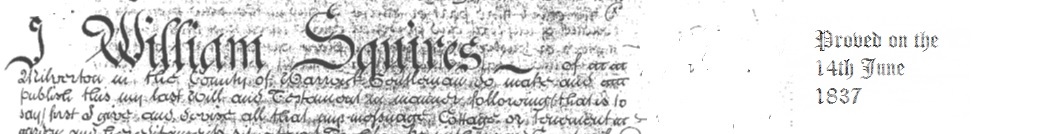 I William Squires of
Milverton in the County of Warwick Gentleman do make and
publish this my last Will and Testament in manner following that is to
say first I give and devise all that my messuage Cottage or Tenement
Proved on the
14th June
1837